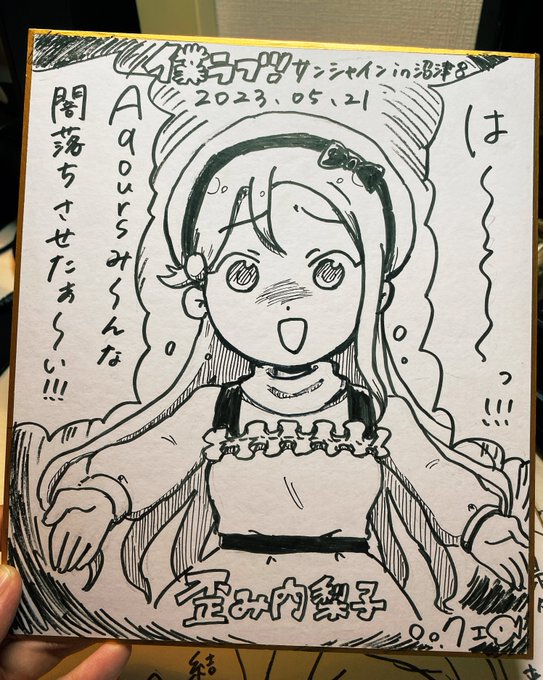 ラブ サンシャイン in 沼津8
2023.05.21
は〜〜〜〜っ!!!
Aqoursみ〜んな
闇落ちさせたぁ〜い!!!
歪み内梨子
結